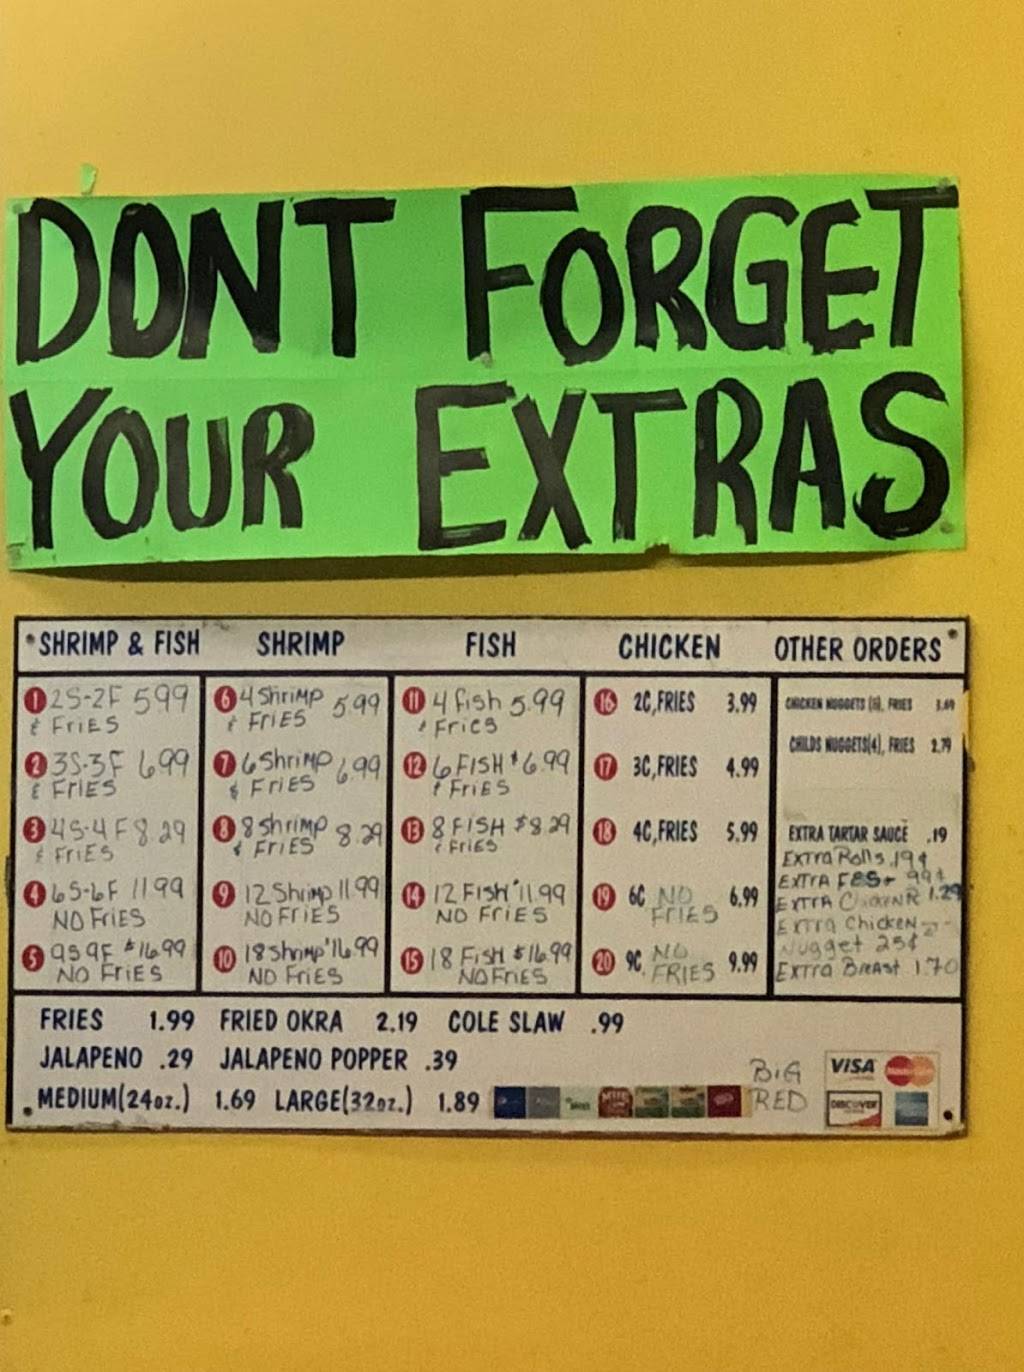 DONT FORGET
YOUR EXTRAS
SHRIMP & FISH
1 2S-2F 5.99
& FRIES
2 3S-3F 6.99
& FRIES
3 4S-4F 8.29
& FRIES
4 6S-6F 11.99
NO FRIES
5 9S 9F $16.99
NO FRIES
SHRIMP
6 4 Shrimp 5.99
& FRIES
7 6 Shrimp 6.99
& FRIES
8 8 Shrimp 8.29
& FRIES
9 12 Shrimp 11.99
NO FRIES
10 18 Shrimp $16.99
NO FRIES
FISH
11 4 fish 5.99
& Fries
12 6 FISH $6.99
& FRIES
13 8 FISH $8.29
& FRIES
14 12 FISH $11.99
NO FRIES
15 18 FISH $16.99
NO FRIES
CHICKEN
16 2C,FRIES 3.99
17 3C,FRIES 4.99
18 4C,FRIES 5.99
19 6C NO 6.99
FRIES
20 9C NO 9.99
FRIES
OTHER ORDERS
CHICKEN NUGGETS (6), FRIES 3.69
CHILDS NUGGETS(4), FRIES 2.79
EXTRA TARTAR SAUCE .19
EXTRA Rolls .19¢
EXTRA 99¢
EXTRA 1.29
EXTRA Chicken
Nugget 25¢
EXTRA Breast 1.70
FRIES 1.99 FRIED OKRA 2.19 COLE SLAW .99
JALAPENO .29 JALAPENO POPPER .39
MEDIUM(24oz.) 1.69 LARGE(32oz.) 1.89
BIG
RED
VISA MasterCard
DISCOVER